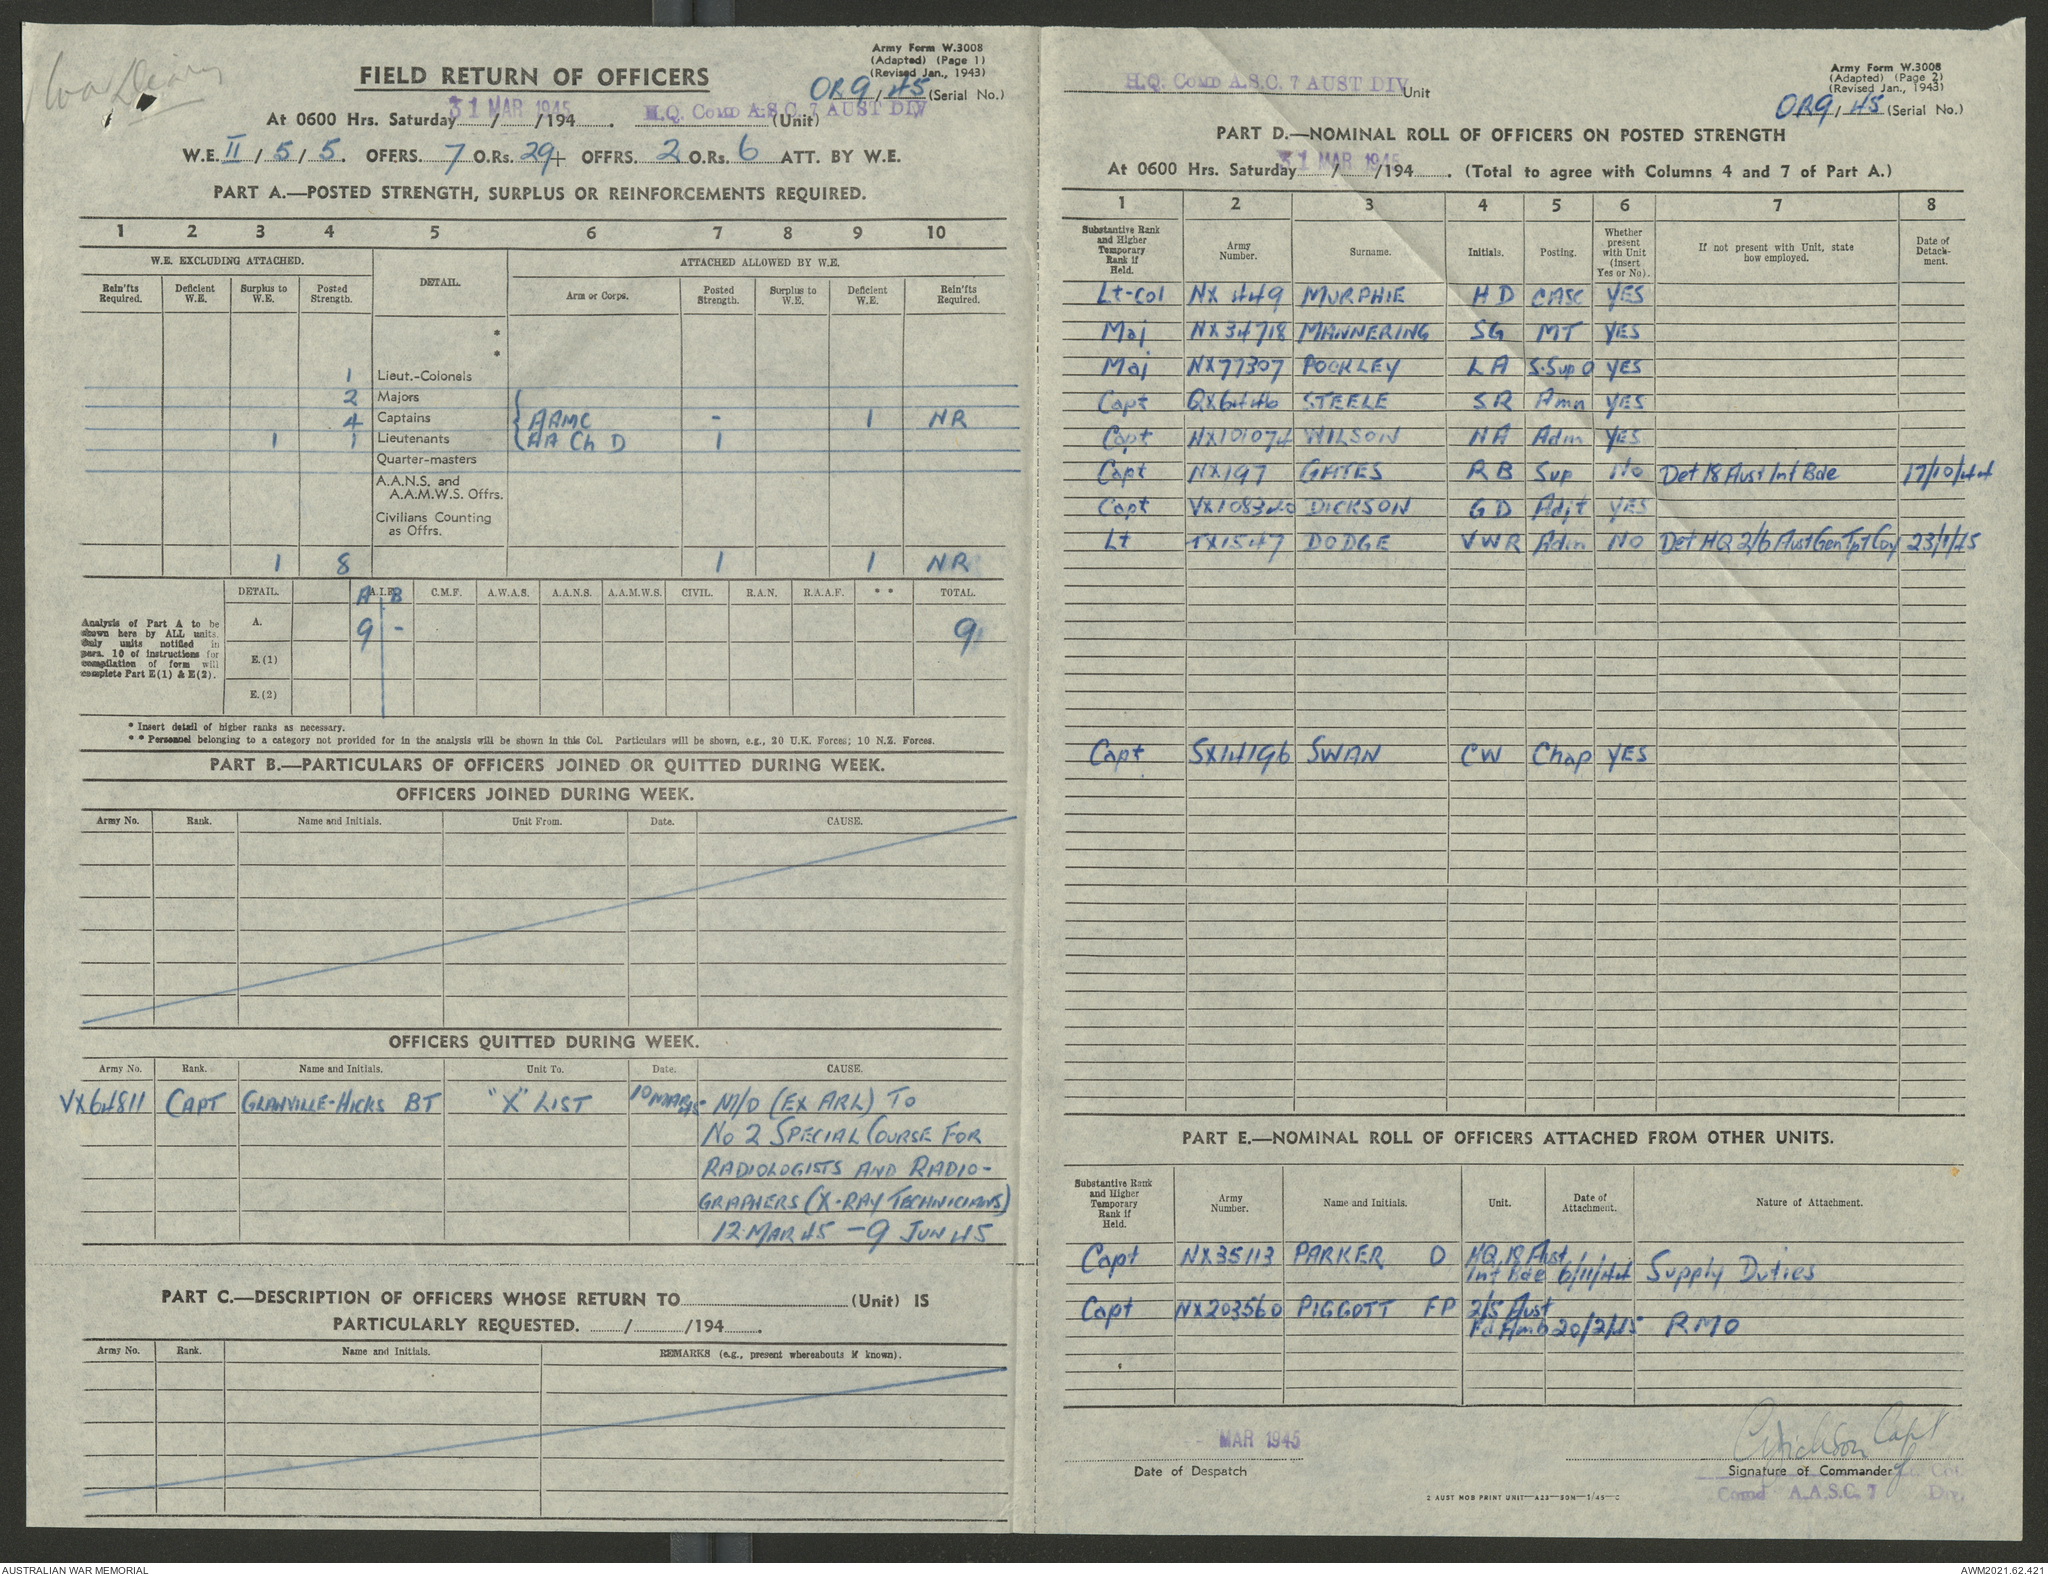 War Diary
Army Form W.3008
(Adapted) (Page 1)
(Revised Jan., 1943)
FIELD RETURN OF OFFICERS
OR9/45 (Serial No.)
At 0600 Hrs. Saturday 31 MAR 1945 /194 H.Q. Comd A.S.C. 7 AUST DIV (Unit)
W.E. II / 5 / 5. OFFRS. 7 O.Rs. 29+ OFFRS. 2 O.Rs. 6 ATT. BY W.E.
PART A.—POSTED STRENGTH, SURPLUS OR REINFORCEMENTS REQUIRED.
1 2 3 4 5 6 7 8 9 10
W.E. EXCLUDING ATTACHED. DETAIL. ATTACHED ALLOWED BY W.E.
Rein'fts Required. Deficient W.E. Surplus to W.E. Posted Strength. Arm or Corps. Posted Strength. Surplus to W.E. Deficient W.E. Rein'fts Required.
*
*
1 Lieut.-Colonels
2 Majors
4 Captains AAMC - 1 NR
1 1 Lieutenants AA Ch D 1
Quarter-masters
A.A.N.S. and
A.A.M.W.S. Offrs.
Civilians Counting
as Offrs.
1 8 1 1 NR
DETAIL. A A.I.F. B C.M.F. A.W.A.S. A.A.N.S. A.A.M.W.S. CIVIL. R.A.N. R.A.A.F. * * TOTAL.
Analysis of Part A to be
shown here by ALL units.
Only units notified in
para. 10 of instructions for
compilation of form will
complete Part E(1) & E(2).
A. 9 - 9
E.(1)
E.(2)
* Insert detail of higher ranks as necessary.
* * Personnel belonging to a category not provided for in the analysis will be shown in this Col. Particulars will be shown, e.g., 20 U.K. Forces; 10 N.Z. Forces.
PART B.—PARTICULARS OF OFFICERS JOINED OR QUITTED DURING WEEK.
OFFICERS JOINED DURING WEEK.
Army No. Rank. Name and Initials. Unit From. Date. CAUSE.
OFFICERS QUITTED DURING WEEK.
Army No. Rank. Name and Initials. Unit To. Date. CAUSE.
VX64811 CAPT GLANVILLE-HICKS BT "X" LIST 10 MAR 45 M/O (EX ARL) TO
NO 2 SPECIAL COURSE FOR
RADIOLOGISTS AND RADIO-
GRAPHERS (X-RAY TECHNICIANS)
12 MAR 45 - 9 JUN 45
PART C.—DESCRIPTION OF OFFICERS WHOSE RETURN TO (Unit) IS
PARTICULARLY REQUESTED. / /194 .
Army No. Rank. Name and Initials. REMARKS (e.g., present whereabouts if known).
Army Form W.3008
(Adapted) (Page 2)
(Revised Jan., 1943)
H.Q. Comd A.S.C. 7 AUST DIV Unit
OR9/45 (Serial No.)
PART D.—NOMINAL ROLL OF OFFICERS ON POSTED STRENGTH
At 0600 Hrs. Saturday 31 MAR 1945 /194 . (Total to agree with Columns 4 and 7 of Part A.)
1 2 3 4 5 6 7 8
Substantive Rank and Higher Temporary Rank if Held. Army Number. Surname. Initials. Posting. Whether present with Unit (insert Yes or No). If not present with Unit, state how employed. Date of Detach-ment.
Lt-Col NX 449 MURPHIE HD CASC YES
Maj NX34718 MANNERING SG MT YES
Maj NX77307 POCKLEY LA S.Sup O YES
Capt QX6446 STEELE SR Amn YES
Capt NX101074 WILSON NA Adm YES
Capt NX197 GATES RB Sup NO Det 18 Aust Inf Bde 17/10/44
Capt VX108320 DICKSON GD Adjt YES
Lt TX1547 DODGE VWR Adm NO Det HQ 2/6 Aust Gen Tpt Coy 23/1/45
Capt SX14196 SWAN CW Chap YES
PART E.—NOMINAL ROLL OF OFFICERS ATTACHED FROM OTHER UNITS.
Substantive Rank and Higher Temporary Rank if Held. Army Number. Name and Initials. Unit. Date of Attachment. Nature of Attachment.
Capt NX35113 PARKER D HQ 18 Aust
Inf Bde 6/11/44 Supply Duties
Capt NX203560 PIGGOTT FP 2/5 Aust
Fd Amb 20/2/45 RMO
MAR 1945
Date of Despatch
GDickson Capt
Signature of Commander
Comd A.A.S.C. 7 Div.
2 AUST MOB PRINT UNIT—A23—50M—1/45—C
AUSTRALIAN WAR MEMORIAL
AWM2021.62.421